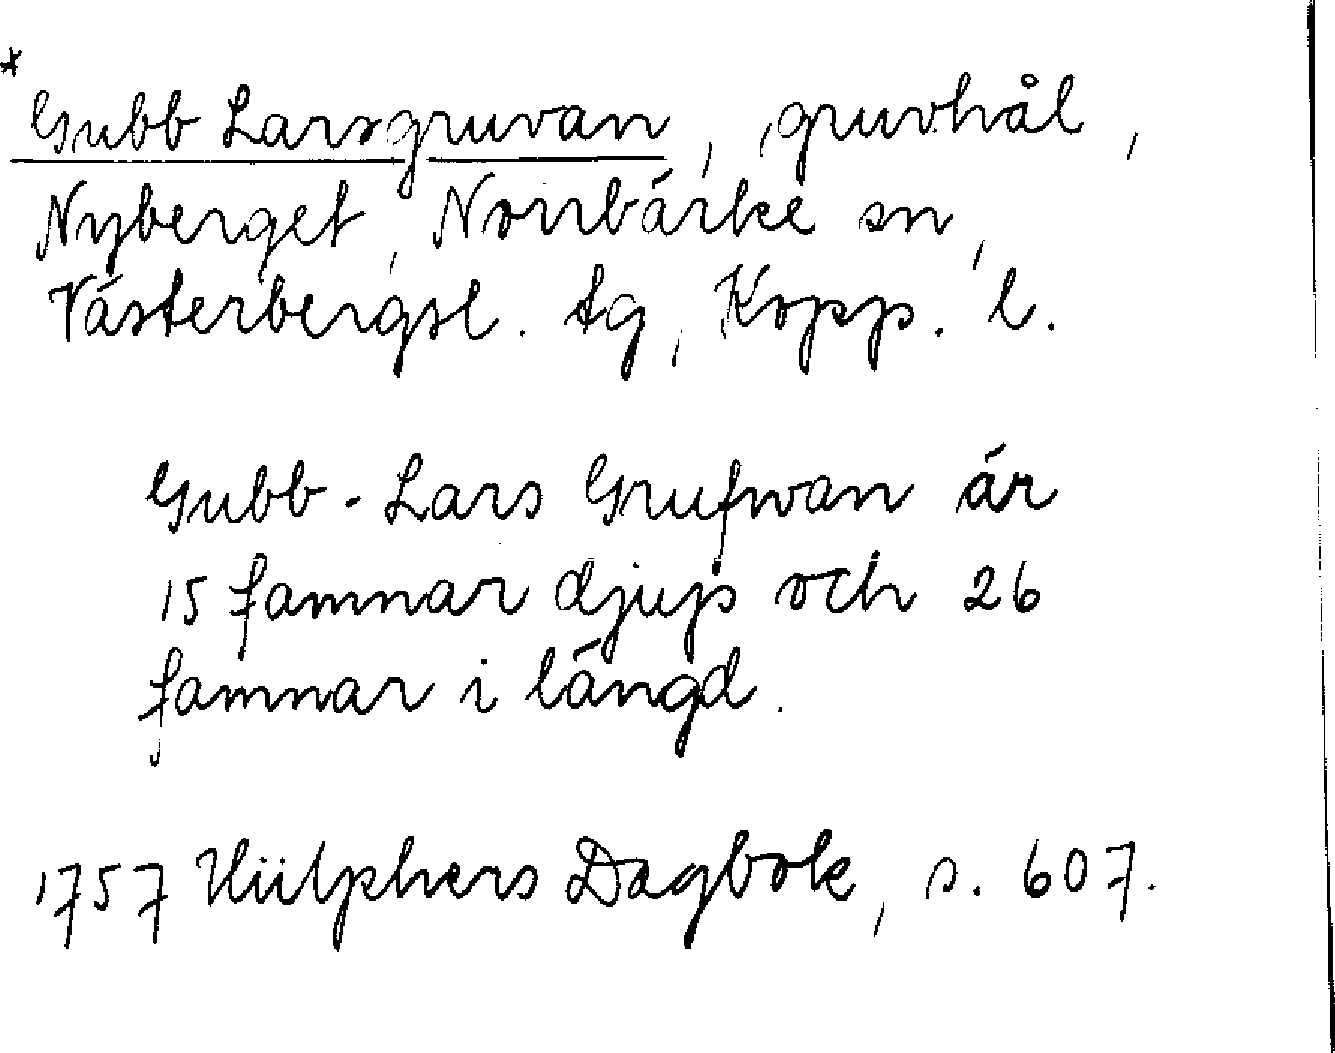 *
Gubb Larsgruvan, gruvhål,
Nyberget, Norrbärke sn,
Västerbergsl. tg, Kopp. l.
Gubb-Lars Grufwan är
15 famnar djup och 26
famnar i längd.
1757 Hülphers Dagbok, s. 607.